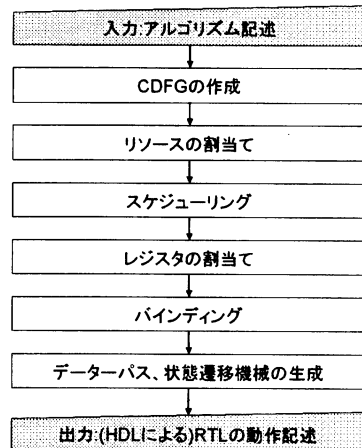 入力:アルゴリズム記述
CDFGの作成
リソースの割当て
スケジューリング
レジスタの割当て
バインディング
データーパス、状態遷移機械の生成
出力:(HDLによる)RTLの動作記述